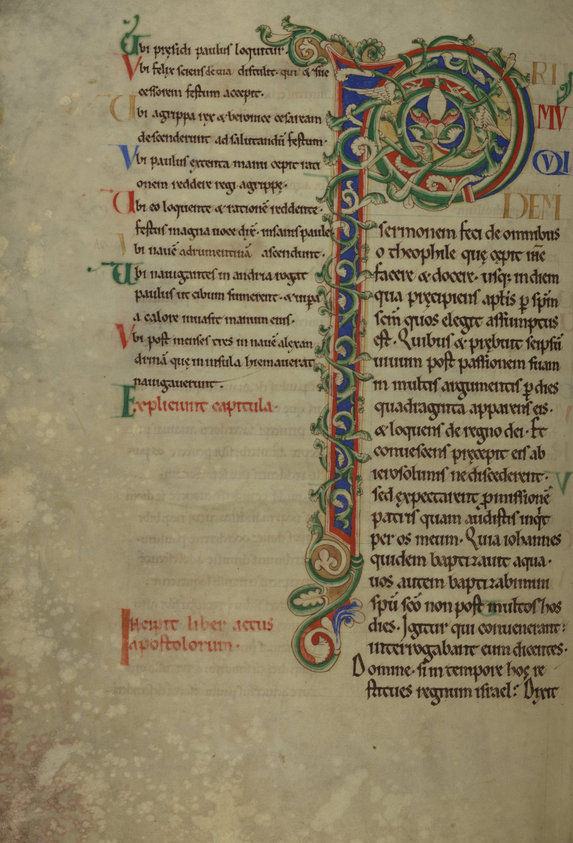 Vbi presidi paulus loquitur.
Vbi felix sciens de uia distulit. qui & sue
cessorem festum accepit.
Vbi agrippa rex & beronice cesaream
descenderunt ad salutandū festum.
Vbi paulus extenta manu cepit rati
onem reddere regi agrippę.
Vbi eo loquente & rationē reddente.
festus magna uoce dix̄. insanis paule.
Vbi nauē adrumentinā ascendunt.
Vbi nauigantes in andria rogat
paulus ut cibum sumerent. & uipa
a calore inuasit manum eius.
Vbi post menses tres in nauē alexan
drinā que in insula hiemauerat
nauigauerunt.
Expliciunt capitula.
Incipit liber actus
apostolorum.
PRI
MV
QVI
DEM
sermonem feci de omnibus
o theophile quę cepit iħc
facere & docere. usq; in diem
qua pręcipiens aptis p spm̄
scm̄ quos elegit assumptus
est. Quibus & prębuit seipsū
uiuum post passionem suam
in multis argumentis p dies
quadraginta apparens eis.
& loquens de regno dei. Et
conuescens pręcepit eis ab
ierosolimis ne discederent.
sed expectarent pmissionē
patris quam audistis inqt
per os meum. Quia iohannes
quidem baptizauit aqua.
uos autem baptizabimini
spū scō non post multos hos
dies. Igitur qui conuenerant:
interrogabant eum dicentes.
Domine. si in tempore hoc re
stitues regnum israel: Dixit